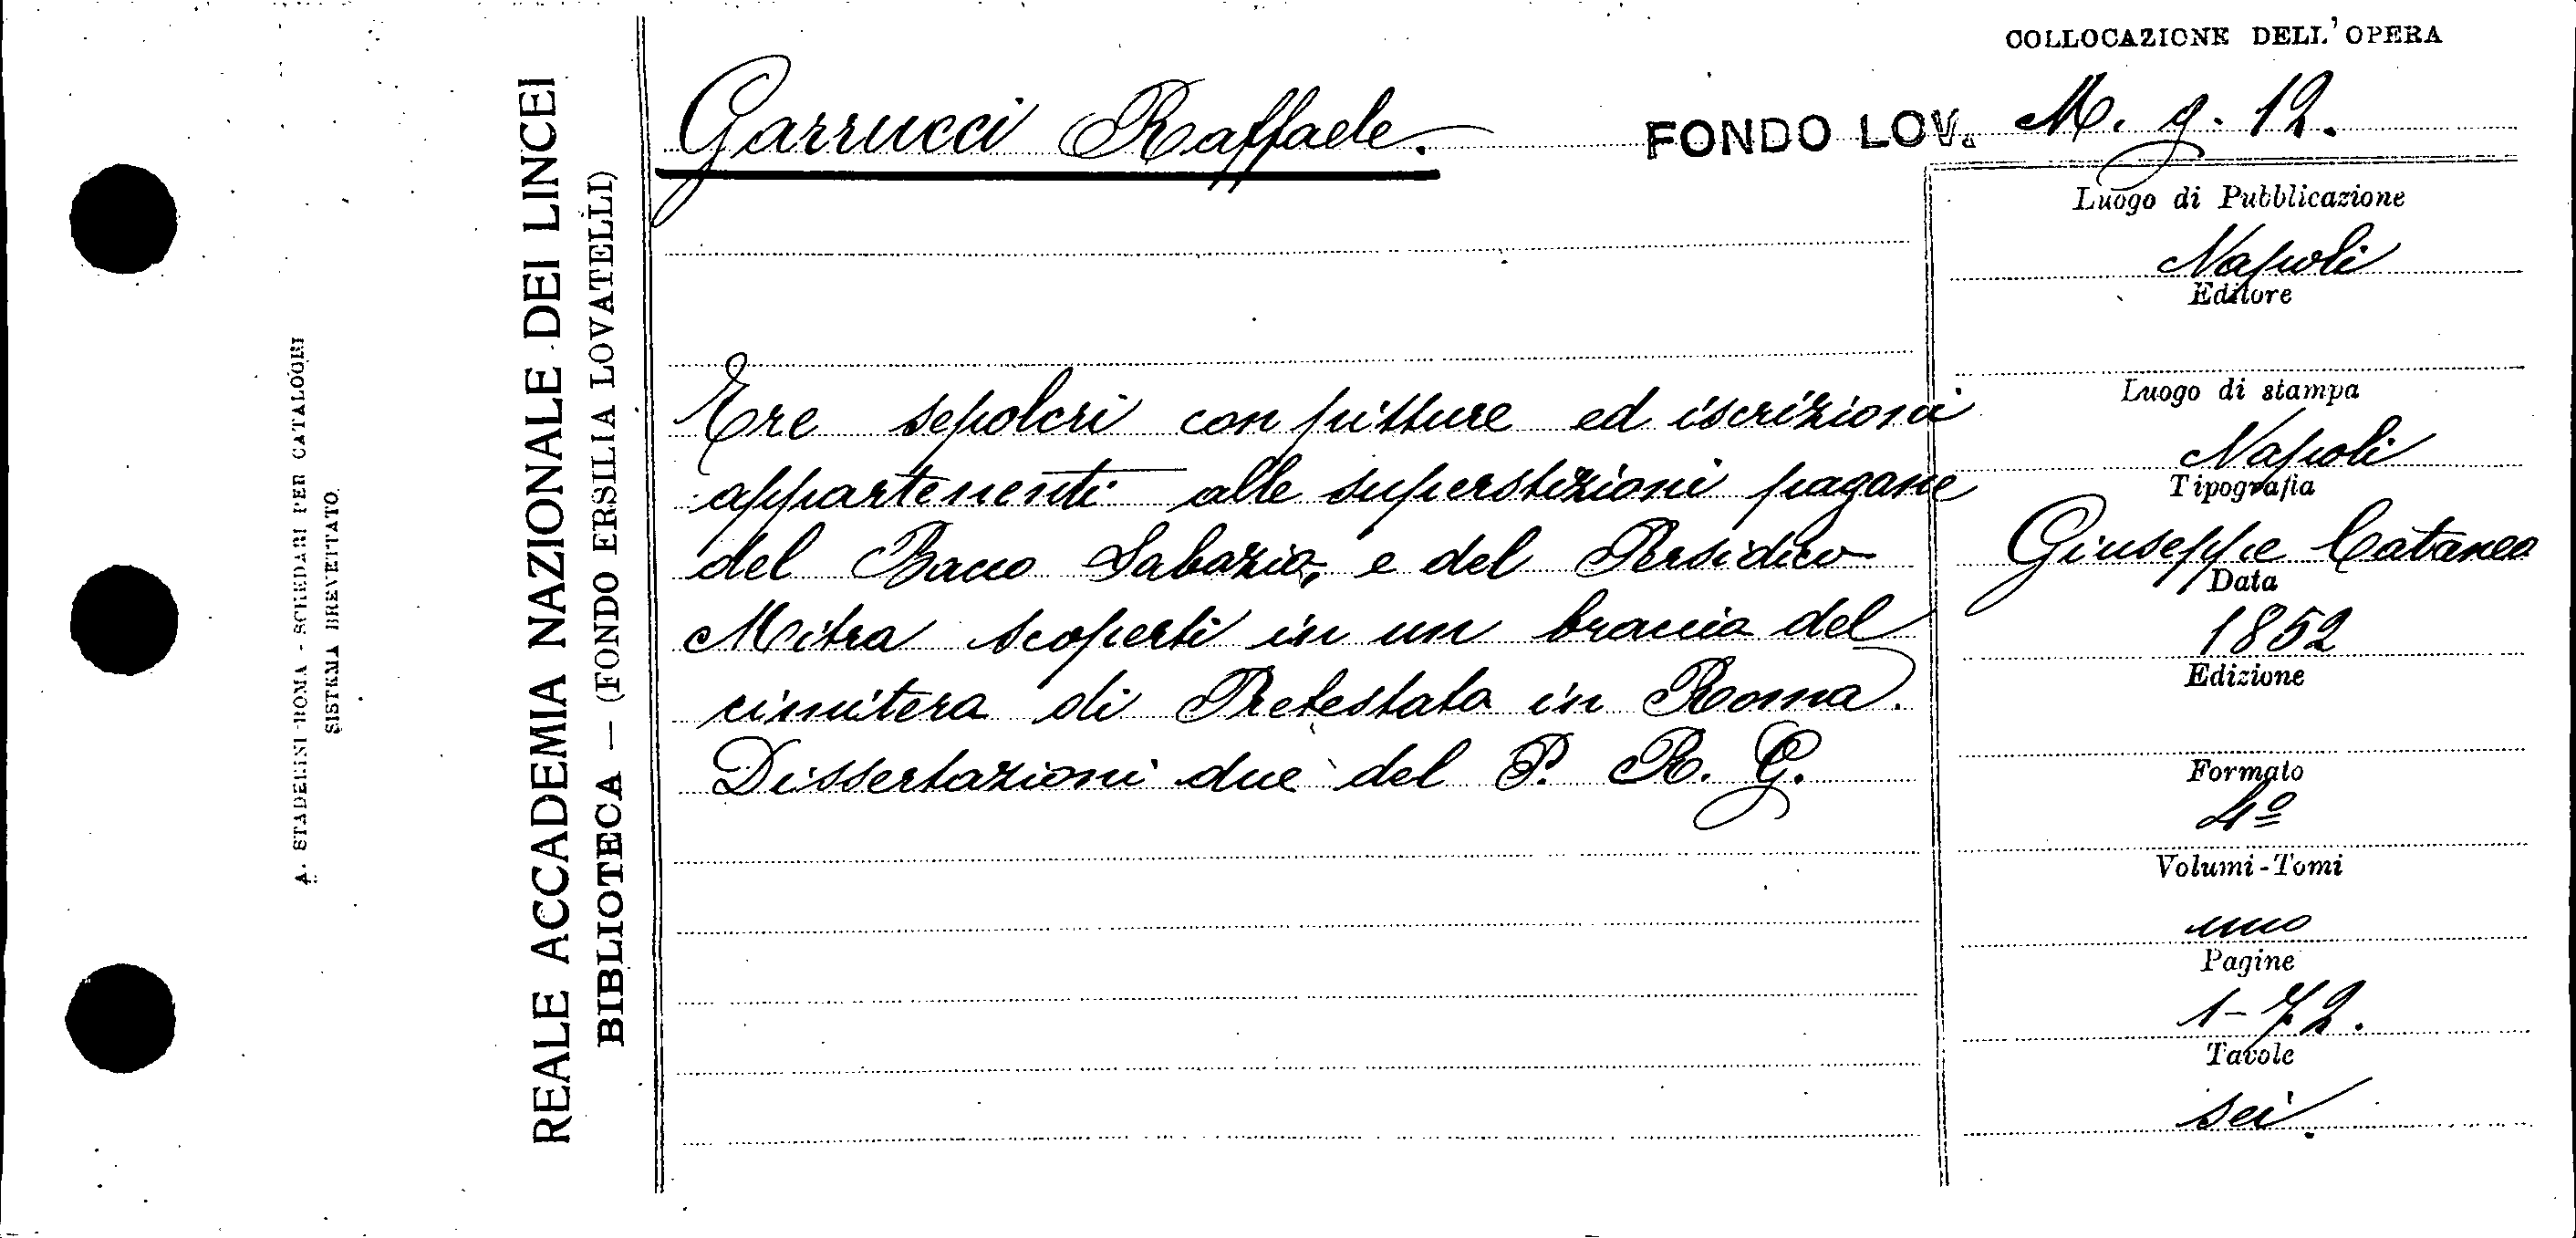 COLLOCAZIONE DELL'OPERA
Garrucci Raffaele.
FONDO LOV. M. g. 12.
Tre sepolcri con pitture ed iscrizioni
appartenenti alle superstizioni pagane
del Bacco Sabazio, e del Persidico
Mitra scoperti in un braccio del
cimitero di Pretestato in Roma.
Dissertazioni due del P. R. G.
Luogo di Pubblicazione
Napoli
Editore
Luogo di stampa
Napoli
Tipografia
Giuseppe Cataneo
Data
1852
Edizione
Formato
4º
Volumi-Tomi
uno
Pagine
1-72.
Tavole
sei.
REALE ACCADEMIA NAZIONALE DEI LINCEI
BIBLIOTECA — (FONDO ERSILIA LOVATELLI)
A. STADERINI-ROMA - SCHEDARI PER CATALOGHI
SISTEMA BREVETTATO